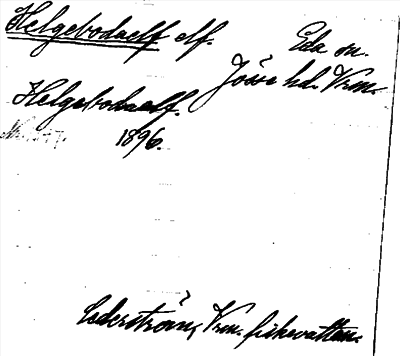 Helgebodaelf elf. Eda sn.
Jösse hd. Vrm.
Helgebodaelf.
1896.
Cederström, Vrm. fiskevatten.